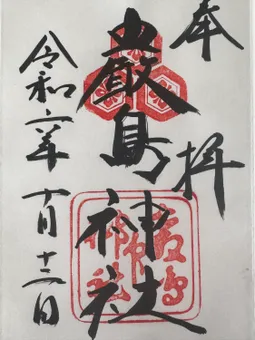 奉拝
嚴島神社
令和六年十月十二日
嚴島
神社